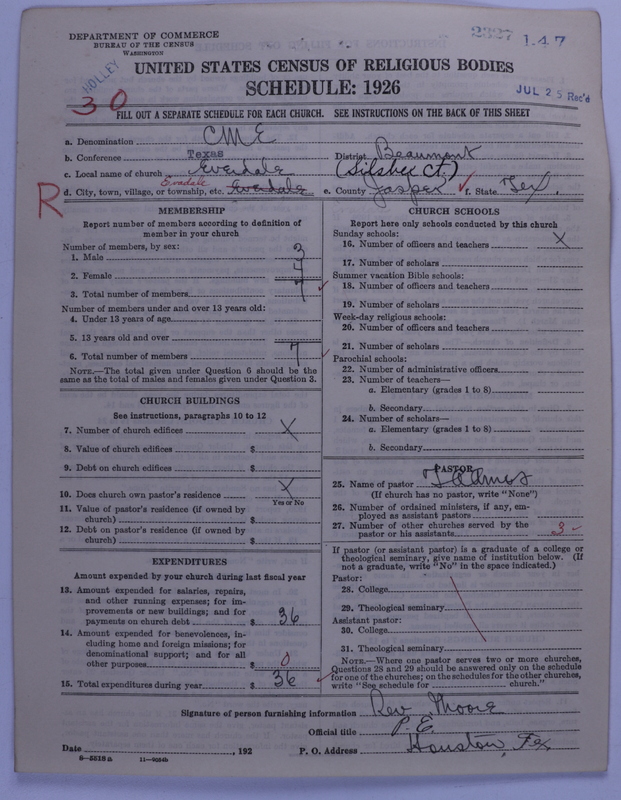 DEPARTMENT OF COMMERCE
BUREAU OF THE CENSUS
WASHINGTON
2327 147
HOLLEY
UNITED STATES CENSUS OF RELIGIOUS BODIES
SCHEDULE: 1926
JUL 25 Rec'd
30
FILL OUT A SEPARATE SCHEDULE FOR EACH CHURCH. SEE INSTRUCTIONS ON THE BACK OF THIS SHEET
a. Denomination CME
b. Conference Texas District Beaumont
c. Local name of church Everdale (Silsbee Ct.)
R
d. City, town, village, or township, etc. Evadale Everdale e. County Jasper f. State Tex.
MEMBERSHIP
Report number of members according to definition of
member in your church
Number of members, by sex:
1. Male 3
2. Female 4
3. Total number of members 7
Number of members under and over 13 years old:
4. Under 13 years of age
5. 13 years old and over
6. Total number of members 7
NOTE.—The total given under Question 6 should be the
same as the total of males and females given under Question 3.
CHURCH BUILDINGS
See instructions, paragraphs 10 to 12
7. Number of church edifices X
8. Value of church edifices $
9. Debt on church edifices $
10. Does church own pastor's residence X
Yes or No
11. Value of pastor's residence (if owned by
church) $
12. Debt on pastor's residence (if owned by
church) $
EXPENDITURES
Amount expended by your church during last fiscal year
13. Amount expended for salaries, repairs,
and other running expenses; for im-
provements or new buildings; and for
payments on church debt $ 36
14. Amount expended for benevolences, in-
cluding home and foreign missions; for
denominational support; and for all
other purposes $ 0
15. Total expenditures during year $ 36
CHURCH SCHOOLS
Report here only schools conducted by this church
Sunday schools:
16. Number of officers and teachers X
17. Number of scholars
Summer vacation Bible schools:
18. Number of officers and teachers
19. Number of scholars
Week-day religious schools:
20. Number of officers and teachers
21. Number of scholars
Parochial schools:
22. Number of administrative officers
23. Number of teachers—
a. Elementary (grades 1 to 8)
b. Secondary
24. Number of scholars—
a. Elementary (grades 1 to 8)
b. Secondary
PASTOR
25. Name of pastor
(If church has no pastor, write "None")
26. Number of ordained ministers, if any, em-
ployed as assistant pastors
27. Number of other churches served by the
pastor or his assistants 3
If pastor (or assistant pastor) is a graduate of a college or
theological seminary, give name of institution below. (If
not a graduate, write "No" in the space indicated.)
Pastor:
28. College
29. Theological seminary
Assistant pastor:
30. College
31. Theological seminary
NOTE.—Where one pastor serves two or more churches,
Questions 28 and 29 should be answered only on the schedule
for one of the churches; on the schedules for the other churches,
write "See schedule for church."
Signature of person furnishing information Rev Moore
Official title P. E.
Date , 192 P. O. Address Houston, Tex
8-5518a 11-9064b